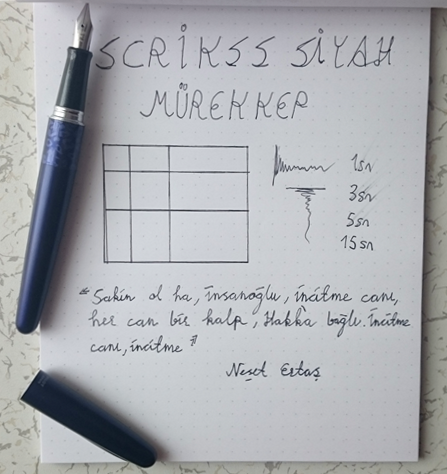 SCRİKSS SİYAH
MÜREKKEP
1sn
3sn
5sn
15sn
"Sakin ol ha, insanoğlu, incitme canı,
her can bir kalp, Hakka bağlı. İncitme
canı, incitme"
Neşet Ertaş